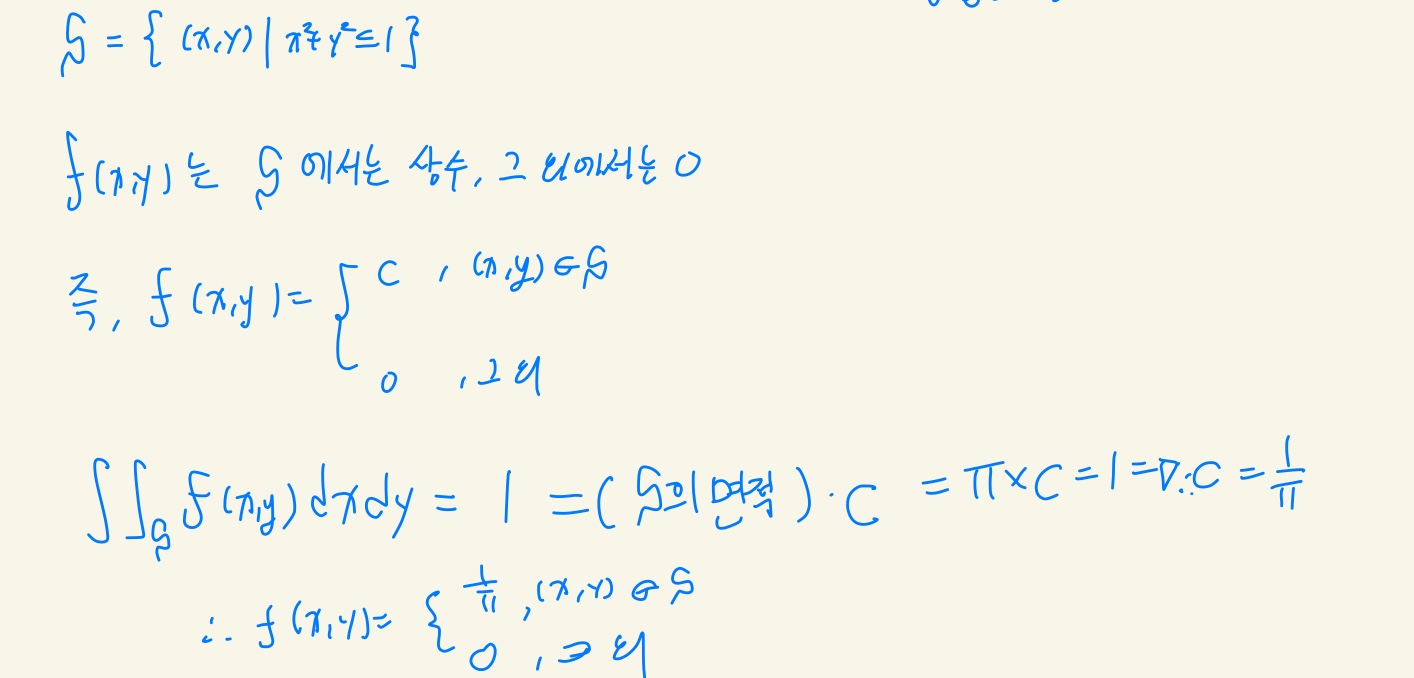 S = { (x,y) | x²+y² ≤ 1 }
f(x,y) 는 S 에서는 상수, 그 외에서는 0
즉, f(x,y) = { C , (x,y) ∈ S
0 , 그 외
∬_S f(x,y) dxdy = 1 = ( S의 면적 ) · C = π × C = 1 ⇒ ∴ C = 1/π
∴ f(x,y) = { 1/π , (x,y) ∈ S
0 , 그 외